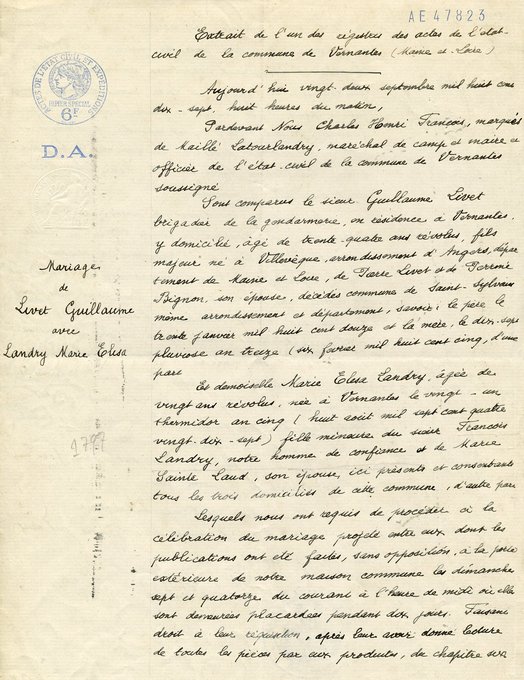 AE 47823
Extrait de l'un des registres des actes de l'état-
civil de la commune de Vernantes (Maine et-Loire)
ACTES DE L'ÉTAT CIVIL ET EXPÉDITIONS
PAPIER SPÉCIAL
6F
D.A.
Mariage
de
Livet Guillaume
avec
Landry Marie Elisa
1797
Aujourd'hui vingt-deux septembre mil huit cent
dix-sept, huit heures du matin,
Pardevant Nous Charles Henri François, marquis
de Maillé Latourlandry, maréchal de camp et maire et
officier de l'état-civil de la commune de Vernantes
soussigné
Sont comparus le sieur Guillaume Livet
brigadier de la gendarmerie, en résidence à Vernantes,
y domicilié, âgé de trente-quatre ans révolus, fils
majeur né à Villevêque, arrondissement d'Angers, dépar-
tement de Maine et Loire, de Pierre Livet et de Perrine
Bignon, son épouse, décédés commune de Saint-Sylvain
même arrondissement et département, savoir: le père le
trente janvier mil huit cent douze et la mère, le dix-sept
pluviose an treize (six février mil huit cent cinq, d'une
part
Et demoiselle Marie Elisa Landry, âgée de
vingt ans révolus, née à Vernantes le vingt-un
thermidor an cinq (huit août mil sept cent quatre
vingt-dix-sept) fille mineure du sieur François
Landry, notre homme de confiance et de Marie
Sainte Laud, son épouse, ici présents et consentants
tous les trois domiciliés de cette commune, d'autre part
Lesquels nous ont requis de procéder à la
célébration du mariage projeté entre eux dont les
publications ont été faites, sans opposition, à la porte
extérieure de notre maison commune les dimanches
sept et quatorze du courant à l'heure de midi où elles
sont demeurées placardées pendant dix jours. Faisant
droit à leur réquisition, après leur avoir donné lecture
de toutes les pièces par eux produites, du chapitre six